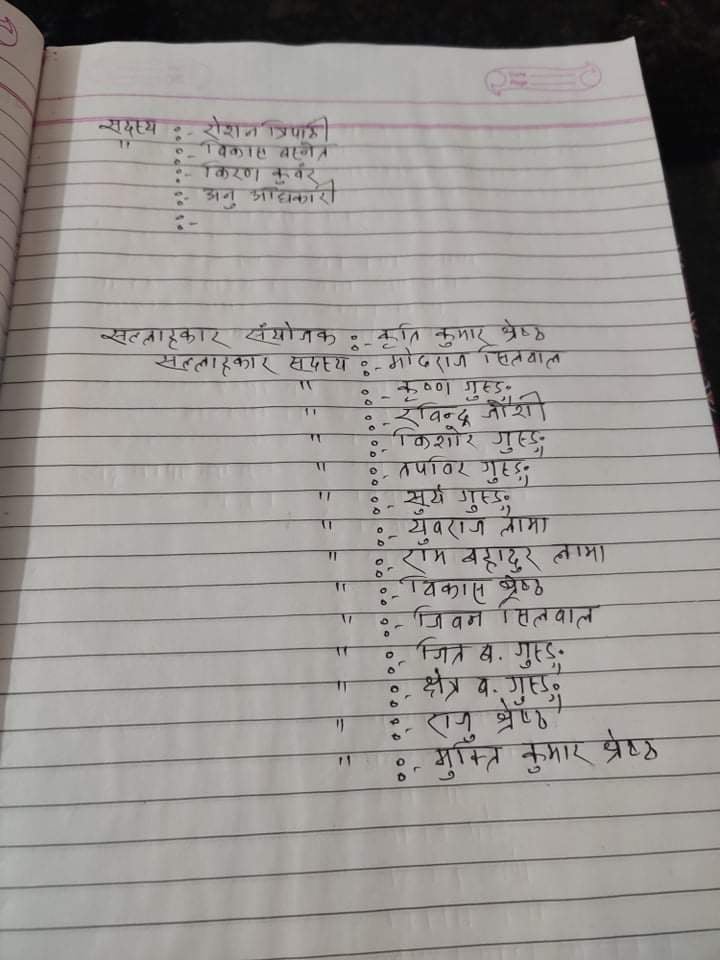 सदस्य :- रोशन त्रिपाठी
" :- विकास बस्नेत
:- किरण कुवँर
:- अनु अधिकारी
:-
सल्लाहकार संयोजक :- कृति कुमार श्रेष्ठ
सल्लाहकार सदस्य :- मोदराज सिलवाल
" :- कृष्ण गुरुङ्ग
" :- रविन्द्र जोशी
" :- किशोर गुरुङ्ग
" :- तपविर गुरुङ्ग
" :- सुर्य गुरुङ्ग
" :- युवराज लामा
" :- राम बहादुर लामा
" :- विकास श्रेष्ठ
" :- जिवन सिलवाल
" :- जित ब. गुरुङ्ग
" :- क्षेत्र ब. गुरुङ्ग
" :- राजु श्रेष्ठ
" :- मुक्ति कुमार श्रेष्ठ